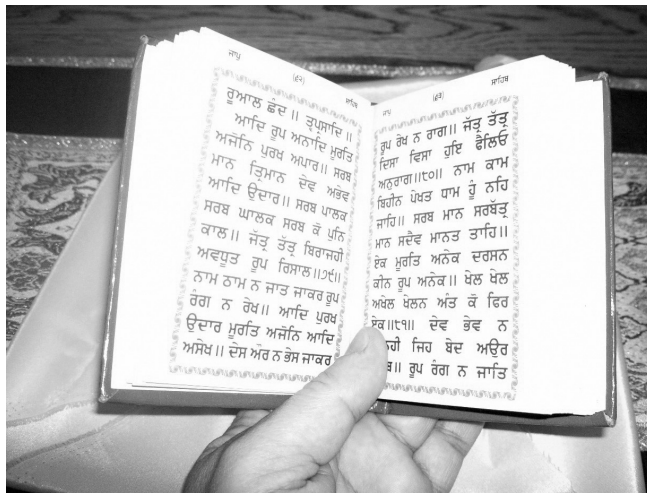 ਜਾਪੁ
ਸਾਹਿਬ
ਰੂਆਲ ਛੰਦ ॥ ਤ੍ਵਪ੍ਰਸਾਦਿ ॥
ਆਦਿ ਰੂਪ ਅਨਾਦਿ ਮੂਰਤਿ
ਅਜੋਨਿ ਪੁਰਖ ਅਪਾਰ॥ ਸਰਬ
ਮਾਨ ਤ੍ਰਿਮਾਨ ਦੇਵ ਅਭੇਵ
ਆਦਿ ਉਦਾਰ॥ ਸਰਬ ਪਾਲਕ
ਸਰਬ ਘਾਲਕ ਸਰਬ ਕੋ ਪੁਨਿ
ਕਾਲ॥ ਜੱਤ੍ਰ ਤੱਤ੍ਰ ਬਿਰਾਜਹੀ
ਅਵਧੂਤ ਰੂਪ ਰਿਸਾਲ॥੭੯॥
ਨਾਮ ਠਾਮ ਨ ਜਾਤ ਜਾਕਰ ਰੂਪ
ਰੰਗ ਨ ਰੇਖ॥ ਆਦਿ ਪੁਰਖ
ਉਦਾਰ ਮੂਰਤਿ ਅਜੋਨਿ ਆਦਿ
ਅਸੇਖ॥ ਦੇਸ ਅੰਰ ਨ ਭੇਸ ਜਾਕਰ
ਜਾਪੁ
ਸਾਹਿਬ
ਰੂਪ ਰੇਖ ਨ ਰਾਗ॥ ਜੱਤ੍ਰ ਤੱਤ੍ਰ
ਦਿਸਾ ਵਿਸਾ ਹੁਇ ਫੈਲਿਓ
ਅਨੁਰਾਗ॥੮੦॥ ਨਾਮ ਕਾਮ
ਬਿਹੀਨ ਪੇਖਤ ਧਾਮ ਹੂੰ ਨਹਿ
ਜਾਹਿ॥ ਸਰਬ ਮਾਨ ਸਰਬੱਤ੍ਰ
ਮਾਨ ਸਦੈਵ ਮਾਨਤ ਤਾਹਿ॥
ਏਕ ਮੂਰਤਿ ਅਨੇਕ ਦਰਸਨ
ਕੀਨ ਰੂਪ ਅਨੇਕ॥ ਖੇਲ ਖੇਲ
ਅਖੇਲ ਖੇਲਨ ਅੰਤ ਕੋ ਫਿਰ
ਏਕ॥੮੧॥ ਦੇਵ ਭੇਵ ਨ
ਜਿਹ ਬੇਦ ਅਉਰ
॥ ਰੂਪ ਰੰਗ ਨ ਜਾਤਿ